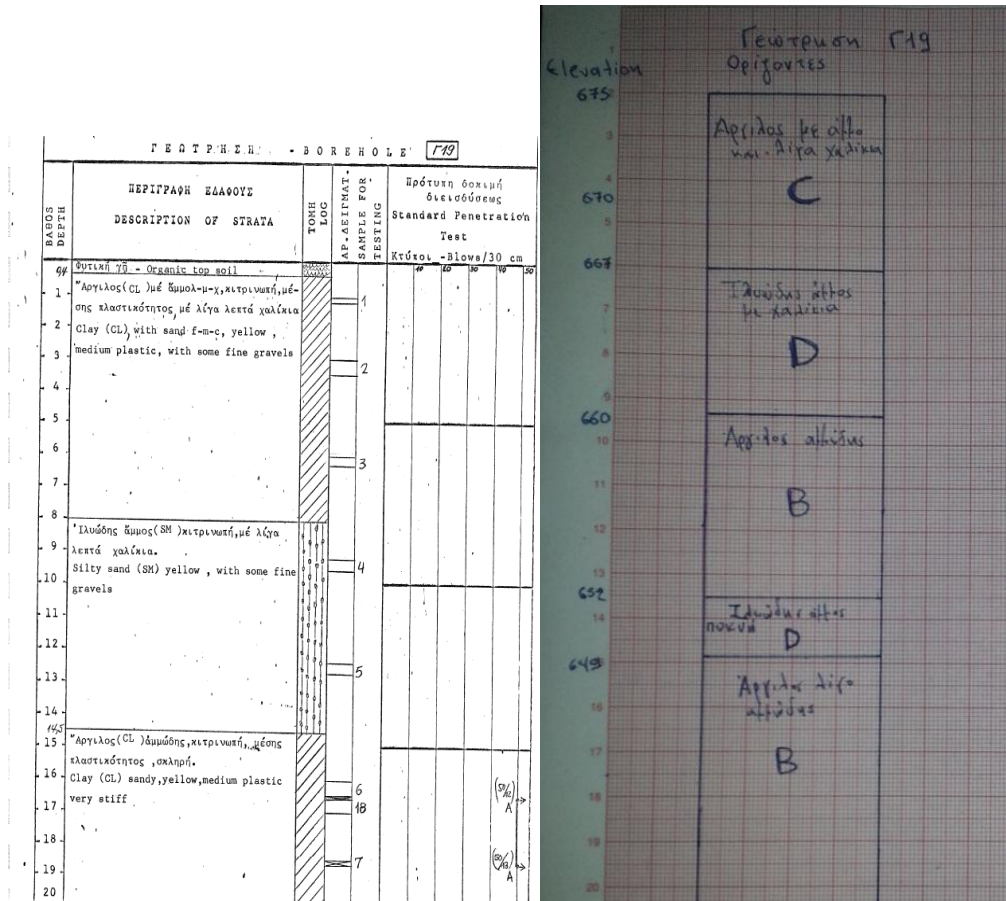 ΓΕΩΤΡΗΣΗ - BOREHOLE Γ19
ΒΑΘΟΣ
DEPTH
ΠΕΡΙΓΡΑΦΗ ΕΔΑΦΟΥΣ
DESCRIPTION OF STRATA
ΤΟΜΗ
LOG
ΑΡ.ΔΕΙΓΜΑΤ.
SAMPLE FOR
TESTING
Πρότυπη δοκιμή
διεισδύσεως
Standard Penetration
Test
Κτύποι -Blows/30 cm
10 20 30 40 50
Φυτική γῆ - Organic top soil
1
2
3
4
5
6
7
8
9
10
11
12
13
14
14,5
15
16
17
18
19
20
Ἄργιλος(CL)μέ ἄμμολ-μ-χ,κιτρινωπή,μέ-
σης πλαστικότητος,μέ λίγα λεπτά χαλίκια
Clay (CL),with sand f-m-c, yellow ,
medium plastic, with some fine gravels
Ἰλυώδης ἄμμος(SM)κιτρινωπή,μέ λίγα
λεπτά χαλίκια.
Silty sand (SM) yellow , with some fine
gravels
Ἄργιλος(CL)ἀμμώδης,κιτρινωπή,μέσης
πλαστικότητος ,σκληρή.
Clay (CL) sandy,yellow,medium plastic
very stiff
1
2
3
4
5
6
18
7
(50/12)
A
(50/13)
A
Γεώτρηση Γ19
Elevation Ορίζοντες
675
Άργιλος με άμμο
και λίγα χαλίκια
C
670
667
Ιλυώδης άμμος
με χαλίκια
D
660
Άργιλος αμμώδης
B
652
Ιλυώδης άμμος
πυκνή
D
649
Άργιλος λίγο
αμμώδης
B
1
3
4
5
7
8
9
10
11
12
13
14
16
17
18
19
20